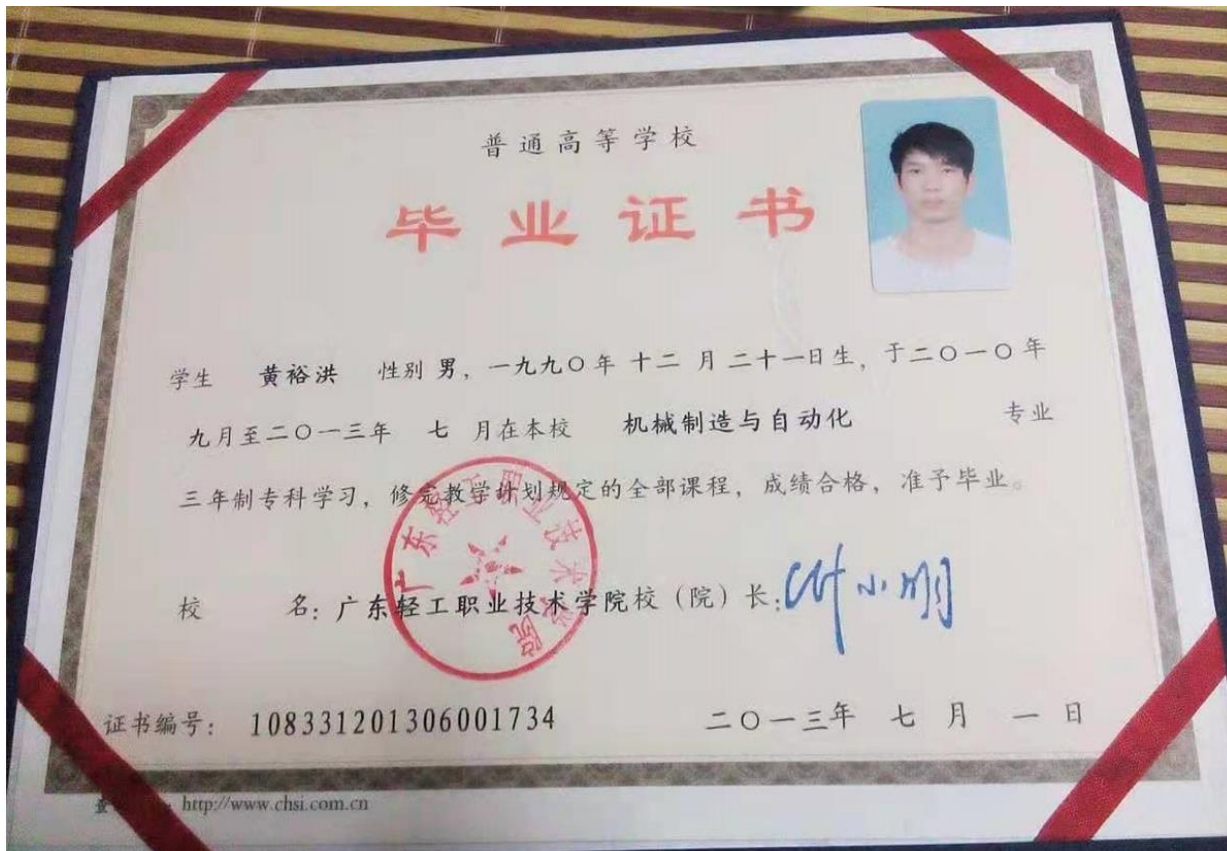 普通高等学校
毕业证书
学生 黄裕洪 性别 男，一九九〇年 十二 月 二十一日生，于二〇一〇年
九月至二〇一三年 七 月在本校 机械制造与自动化 专业
三年制专科学习，修完教学计划规定的全部课程，成绩合格，准予毕业。
广东轻工职业技术学院
校 名：广东轻工职业技术学院校（院）长：
证书编号： 108331201306001734 二〇一三年 七 月 一 日
http://www.chsi.com.cn